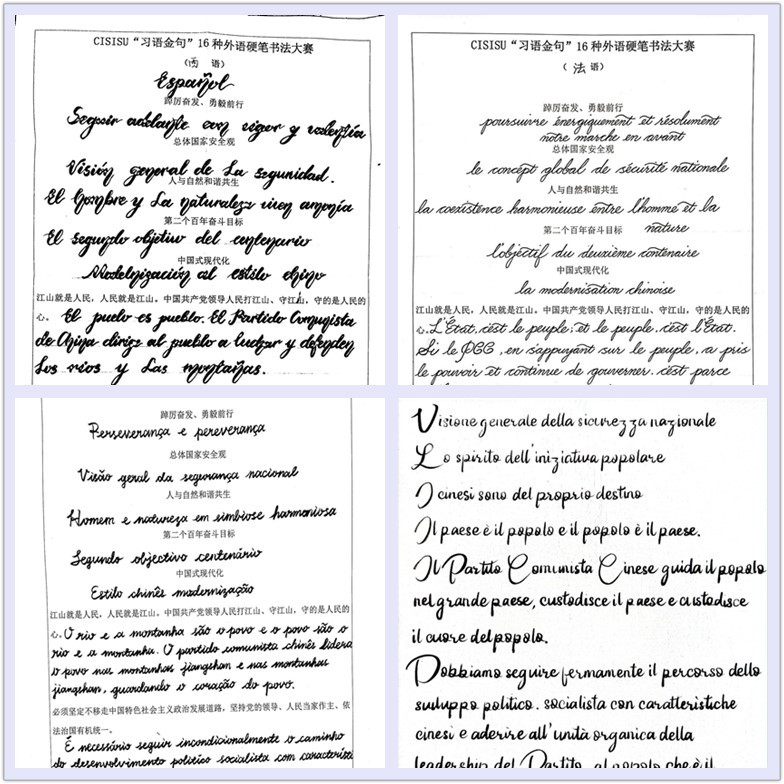 CISISU“习语金句”16种外语硬笔书法大赛
（西 语）
Español
踔厉奋发、勇毅前行
Seguir adelante con vigor y valentía
总体国家安全观
Visión general de La segunidad.
人与自然和谐共生
El hombre y La naturaleza viven armonía
第二个百年奋斗目标
El segundo objetivo del centenario
中国式现代化
Modelnización al estilo chino
江山就是人民，人民就是江山。中国共产党领导人民打江山、守江山，守的是人民的
心。El puelo es pueblo. El Partido Comunista
de China dirige al pueblo a luchar y defender
Los ríos y Las montañas.
CISISU“习语金句”16种外语硬笔书法大赛
（法 语）
踔厉奋发、勇毅前行
poursuivre énergiquement et résolument
notre marche en avant
总体国家安全观
le concept global de sécurité nationale
人与自然和谐共生
la coexistence harmonieuse entre l'homme et la
第二个百年奋斗目标 nature
l'objectif du deuxième centenaire
中国式现代化
la modernisation chinoise
江山就是人民，人民就是江山。中国共产党领导人民打江山、守江山，守的是人民的
心。L'État, c'est le peuple; et le peuple, c'est l'État.
Si le PCC, en s'appuyant sur le peuple, a pris
le pouvoir et continue de gouverner. c'est parce
踔厉奋发、勇毅前行
Perseverança e pereverança
总体国家安全观
Visão geral da segurança nacional
人与自然和谐共生
Homem e natureza em simbiose harmoniosa
第二个百年奋斗目标
Segundo objectivo centenário
中国式现代化
Estilo chinês modernização
江山就是人民，人民就是江山。中国共产党领导人民打江山、守江山，守的是人民的
心。O rio e a montanha são o povo e o povo são o
rio e a montanha. O partido comunista chinês lidera
o povo nas montanhas jiangshan e nas montanhas
jiangshan, guardando o coração do povo.
必须坚定不移走中国特色社会主义政治发展道路，坚持党的领导、人民当家作主、依
法治国有机统一。
É necessário seguir incondicionalmente o caminho
do desenvolvimento político socialista com característi
Visione generale della sicurezza nazionale
Lo spirito dell'iniziativa popolare
I cinesi sono del proprio destino
Il paese è il popolo e il popolo è il paese.
Il Partito Comunista Cinese guida il popolo
nel grande paese, custodisce il paese e custodisce
il cuore del popolo.
Dobbiamo seguire fermamente il percorso dello
sviluppo politico. socialista con caratteristiche
cinesi e aderire all'unità organica della
leadership del Partito, al popolo che è il